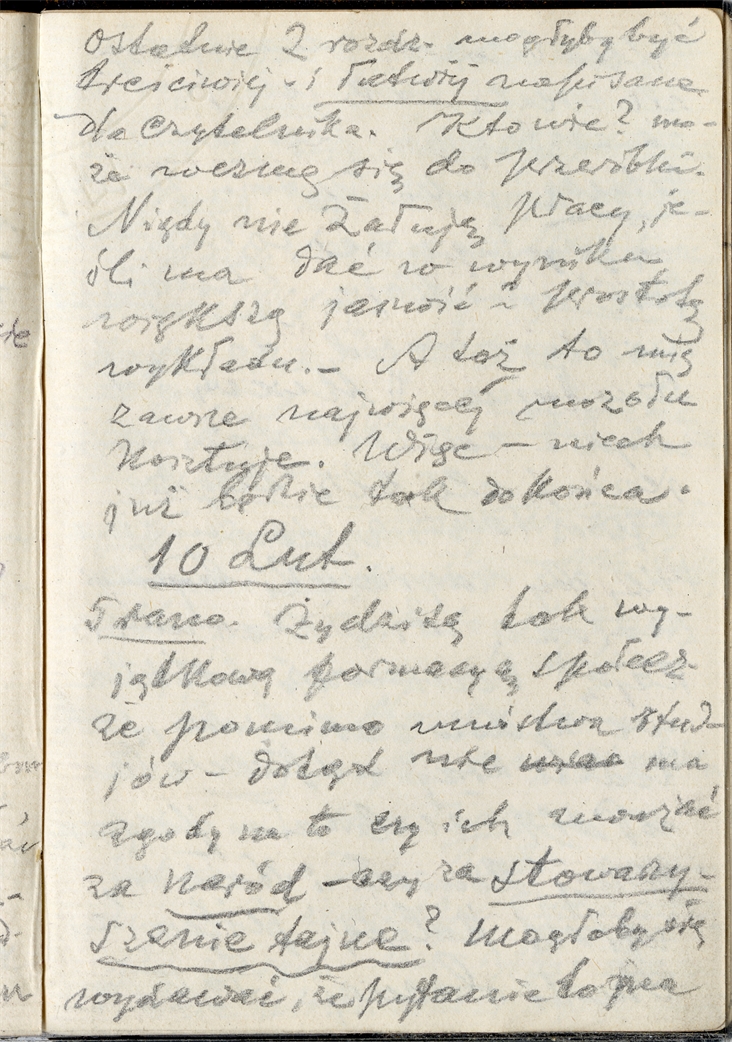 Ostatnie 2 rozdz. mogłyby być
treściwiej - i łatwiej napisane
dla czytelnika. Kto wie? mo-
że wezmę się do przeróbki.
Nigdy nie żałuję pracy, je-
śli ma dać w wyniku
większą jasność i prostotę
wykładu. - A toż to mię
zawsze najwięcej mozołu
kosztuje. Więc - niech
już będzie tak do końca.
10 Lut.
Frano. Żydzi są tak wy-
jątkową formacyą społecz.
że pomimo mnóstwa stud-
jów - dotąd nie ma
zgody na to czy ich uważać
za naród - czy za stowarzy-
szenie tajne? Mogłoby się
wydawać, że pytanie to